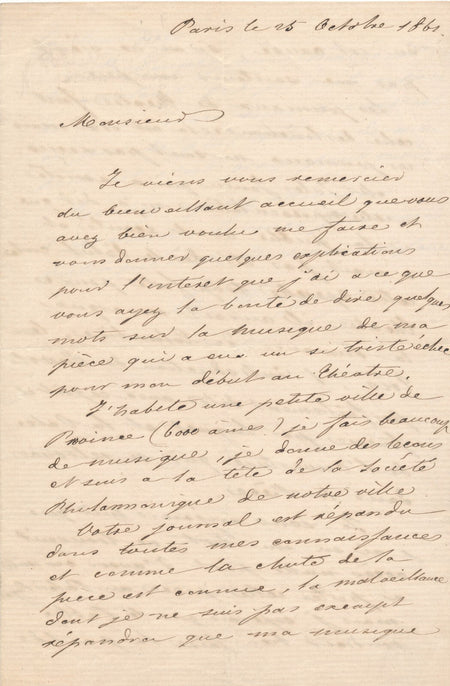 Paris le 25 Octobre 1861.
Monsieur
Je viens vous remercier
du bienveillant accueil que vous
avez bien voulu me faire et
vous donner quelques explications
pour l'interet que j'ai a ce que
vous ayez la bonté de dire quelques
mots sur la musique de ma
pièce qui a eu un si triste echec
pour mon début au théatre.
J'habite une petite ville de
Province (6000 âmes) je fais beaucoup
de musique, je donne des lecons
et suis a la tête de la Société
Philarmonique de notre ville
Votre journal est répandu
dans toutes mes connaissances
et comme la chute de la
piece est connue, la malveillance
dont je ne suis pas exempt
répandra que ma musique